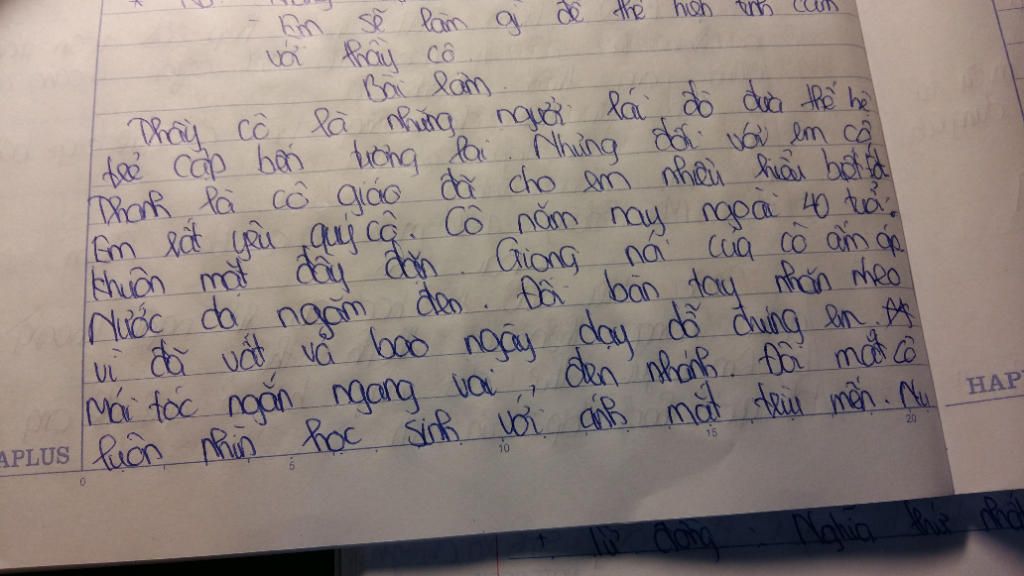 - Em sẽ làm gì để thể hiện tình cảm
với thầy cô.
Bài làm.
Thầy cô là những người lái đò đưa thế hệ
trẻ cập bến tương lai. Nhưng đối với em cô
Thanh là cô giáo đã cho em nhiều hiểu biết
Em rất yêu quý cô. Cô năm nay ngoài 40 tuổi.
khuôn mặt đầy đặn. Giọng nói của cô ấm áp
Nước da ngăm đen. Đôi bàn tay nhăn nheo
vì đã vất vả bao ngày dạy dỗ chúng em.
Mái tóc ngắn ngang vai, đen nhánh. Đôi mắt cô
luôn nhìn học sinh với ánh mắt trìu mến. Nụ
APLUS
0 5 10 15 20
HAP
+ Từ đồng : Nghĩa thứ nhất